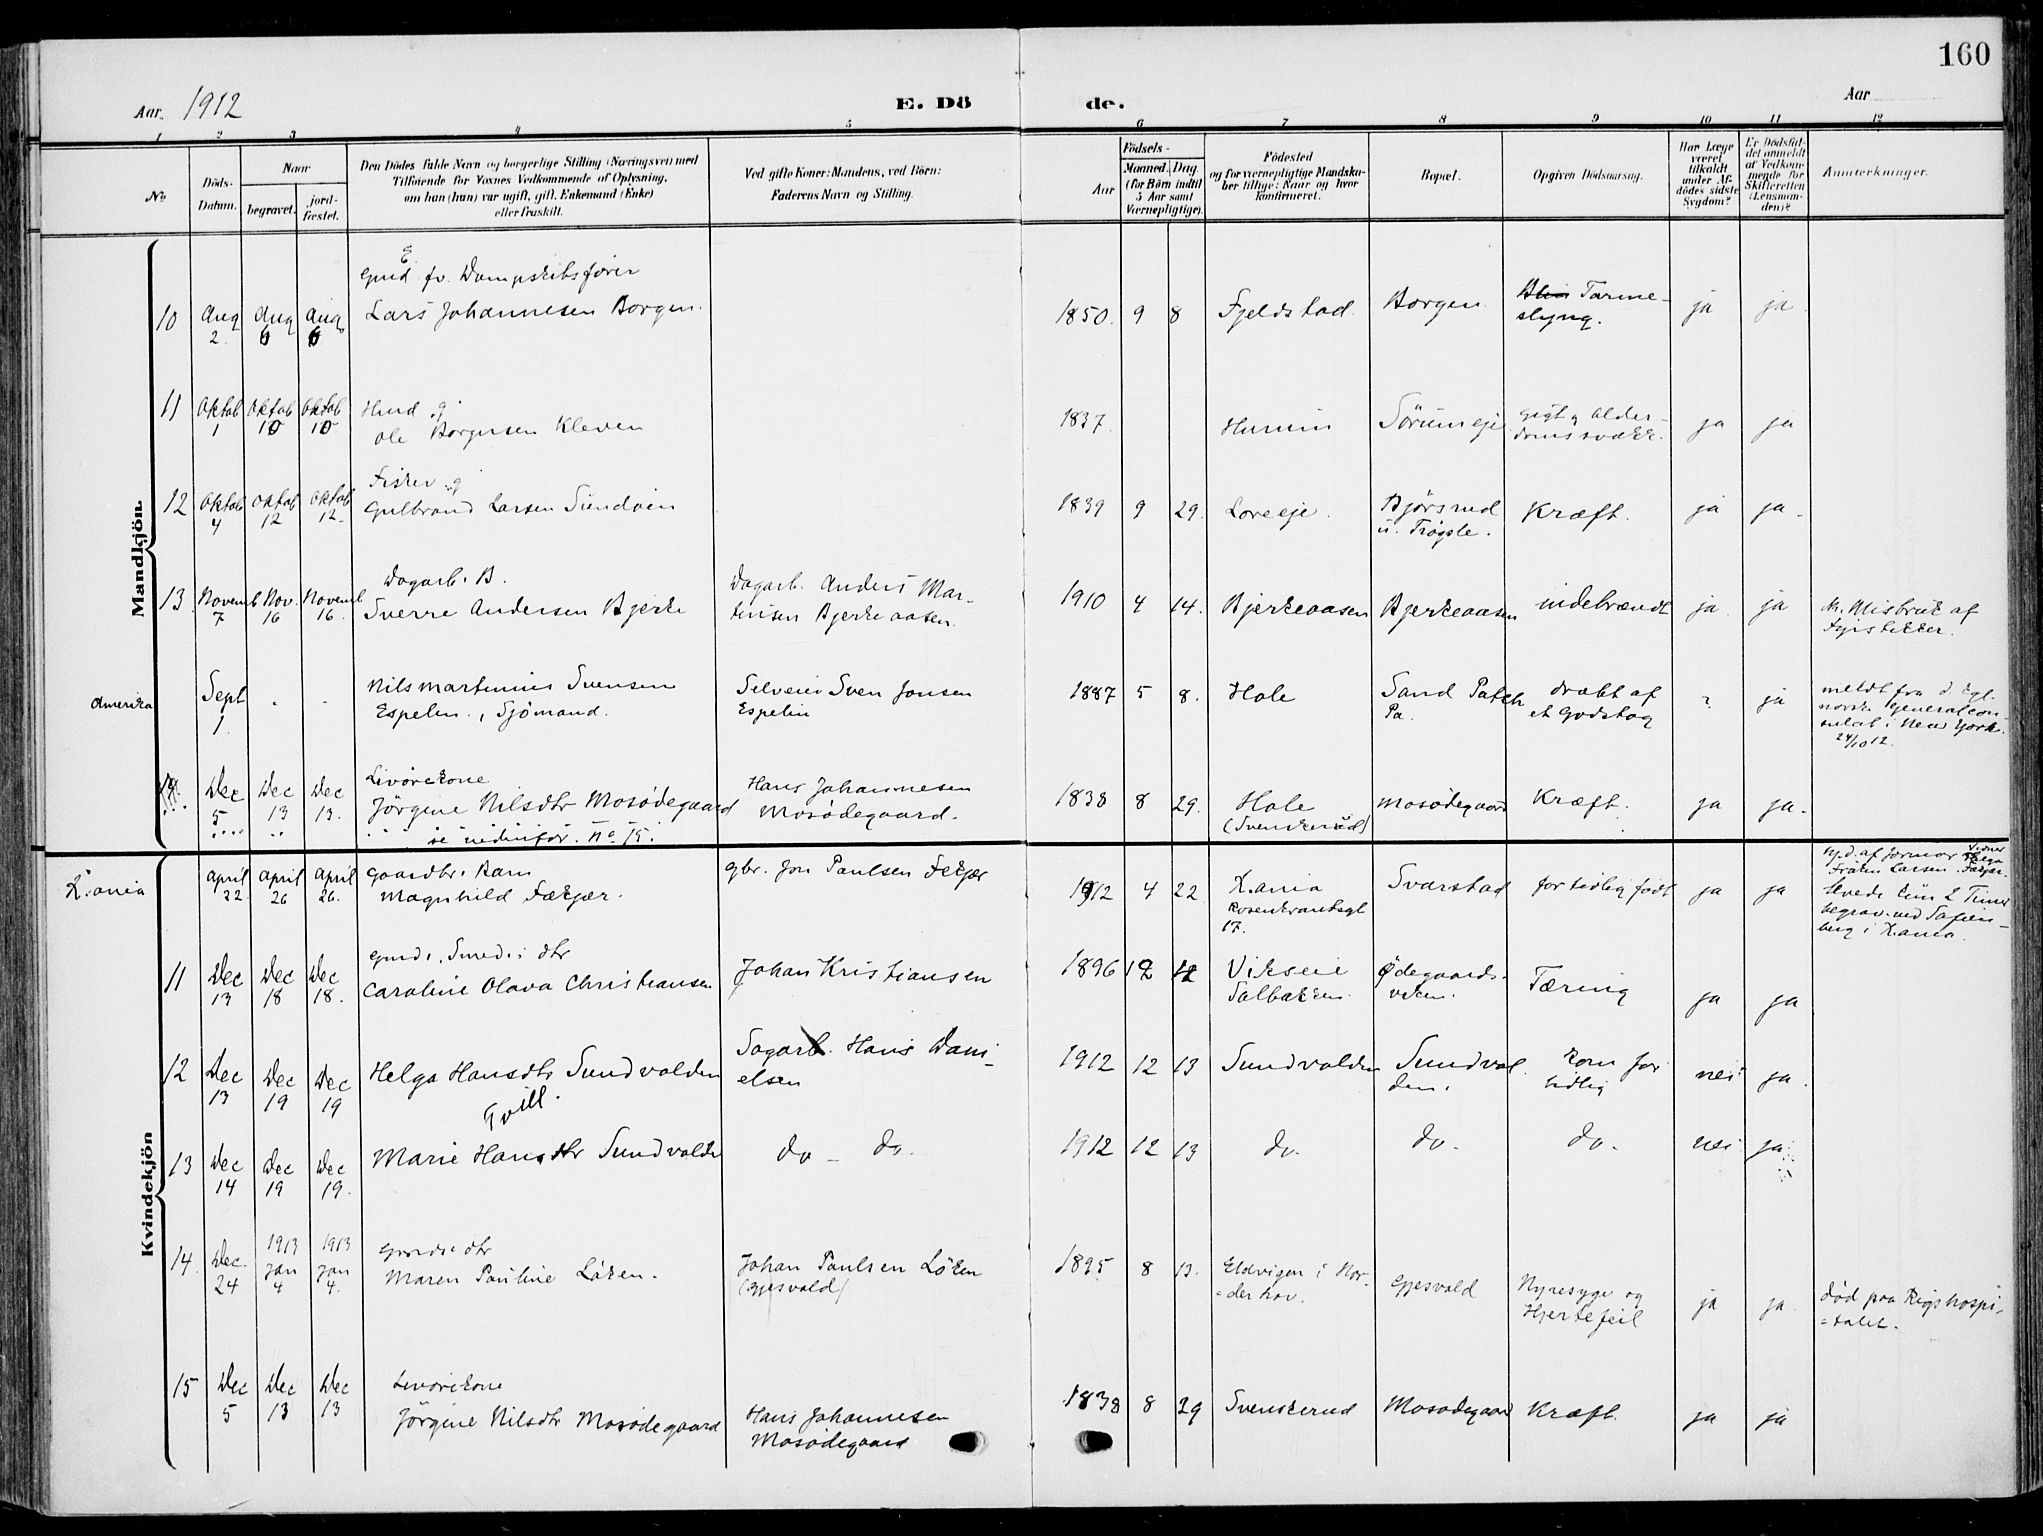 160
Aar 1912
E. Dö
de.
Aar
1 2 3 4 5 6 7 8 9 10 11 12
No
Döds-Datum.
Naar
begravet.
jord-fæstet.
Den Dödes fulde Navn og borgerlige Stilling (Næringsvei) med
Tilföiende for Voxnes Vedkommende af Oplysning,
om han (hun) var ugift, gift, Enkemand (Enke)
eller fraskilt.
Ved gifte Koner: Mandens, ved Börn:
Faderens Navn og Stilling.
Födsels-
Aar
Maaned. Dag
(for Börn indtil
5 Aar samt
Værnepligtige).
Födested
og for værnepligtige Mandska-
ber tillige: Naar og hvor
konfirmeret.
Bopæl.
Opgiven Dödsaarsag.
Har Læge
været
tilkaldt
under Af-
dödes sidste
Sygdom?
Er Dödsfal-
det anmeldt
af Vedkom-
mende for
Skifteretten
(Lensman-
den)?
Anmerkninger.
Mandkjön.
E
Gmd. fv. Dampskibsfører
10 Aug 2. Aug 6 Aug 6 Lars Johannesen Borgen. 1850. 9 8 Fjeldstad. Borgen Tarme-
slyng. ja ja.
Hmd g
11 Oktob 1 Oktob 10 Oktob 10 Ole Borgersen Kleven 1837. Hurum Sørumeje Gigt g Alder-
domssvækk. ja ja
Fisker g
12 Oktob 4 Oktob 12 Oktob 12. Gulbrand Larsen Sundøen 1839 9 29. Loreeje. Bjørsrud
u. Trøgsle. Kræft. ja ja.
Dagarb. B.
13 Novemb 7 Nov. 16 Novemb 16. Sverre Andersen Bjerke Dagarb. Anders Mar-
tinsen Bjerkeaasen. 1910 4 14. Bjerkeaasen Bjerkeaasen indebrændt ja. ja v. Misbruk af
Fyrstikker.
Amerika Sept 1. Nils Martinius Svensen
Espelin., Sjömand. Selveier Sven Jonsen
Espelin 1887 5 8. Hole Sand Patch
Pa. dræbt af
et Godstog ? ja meldt fra d. kgl.
norske Generalcon-
sulat i New York.
24/10 12.
Livørekone
Dec 5 Dec 13 Dec 13. Jörgine Nilsdtr Mosødegaard
se nedenfor. No 15. Hans Johannesen
Mosødegaard. 1838 8 29. Hole
(Svenskerud) Mosødegaard Kræft. ja ja.
Kvindekjön
K.ania April 22. April 26 April 26. Gaardbr. Barn
Magnhild Fækjær. gbr. Jon Paulsen Fekjær 1912 4 22 K.ania
Rosenkrantzgt
17. Svarstad for tidlig født ja ja hj.d. af Jormor
Frøken Larsen. Vidner Helga Fækjær.
levede kun 2 Timer
begrav. ved Sofien-
berg i K.ania.
Gmds, Smeds dtr
11 Dec 13 Dec 18 Dec 18. Caroline Olava Christiansen Johan Kristiansen 1896 12 12 Vikseie
Salbakken. Ødegaards-
viken. Tæring ja ja
12 Dec 13 Dec 19 Dec 19 Helga Hansdtr Sundvolden Sagarb. Hans Dani-
elsen 1912 12 13 Sundvolden Sundvol
den. kom for
tidlig nei ja.
Tvill.
13 Dec 14 Dec 19 Dec 19. Marie Hansdtr Sundvolde do - do. 1912 12 13 do. do. do. nei ja
Gmds dtr
14. Dec. 24 1913 Jan 4 1913 Jan 4. Maren Pauline Løken. Johan Paulsen Løken
(Gjesvald) 1895 8 13. Eldvigen i Nor-
=derhov. Gjesvald Nyresyge og
Hjertefeil ja ja. død paa Rigshospi-
=talet.
Livørekone
15 Dec 5 Dec 13 Dec 13 Jörgine Nilsdtr Mosødegaard Hans Johannesen
Mosødegaard 1838 8 29 Svenskerud Mosødegaard Kræft. ja ja